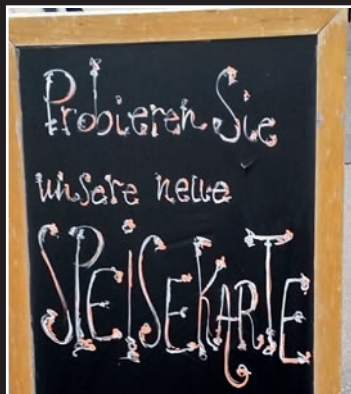 Probieren Sie
unsere neue
SPEISEKARTE